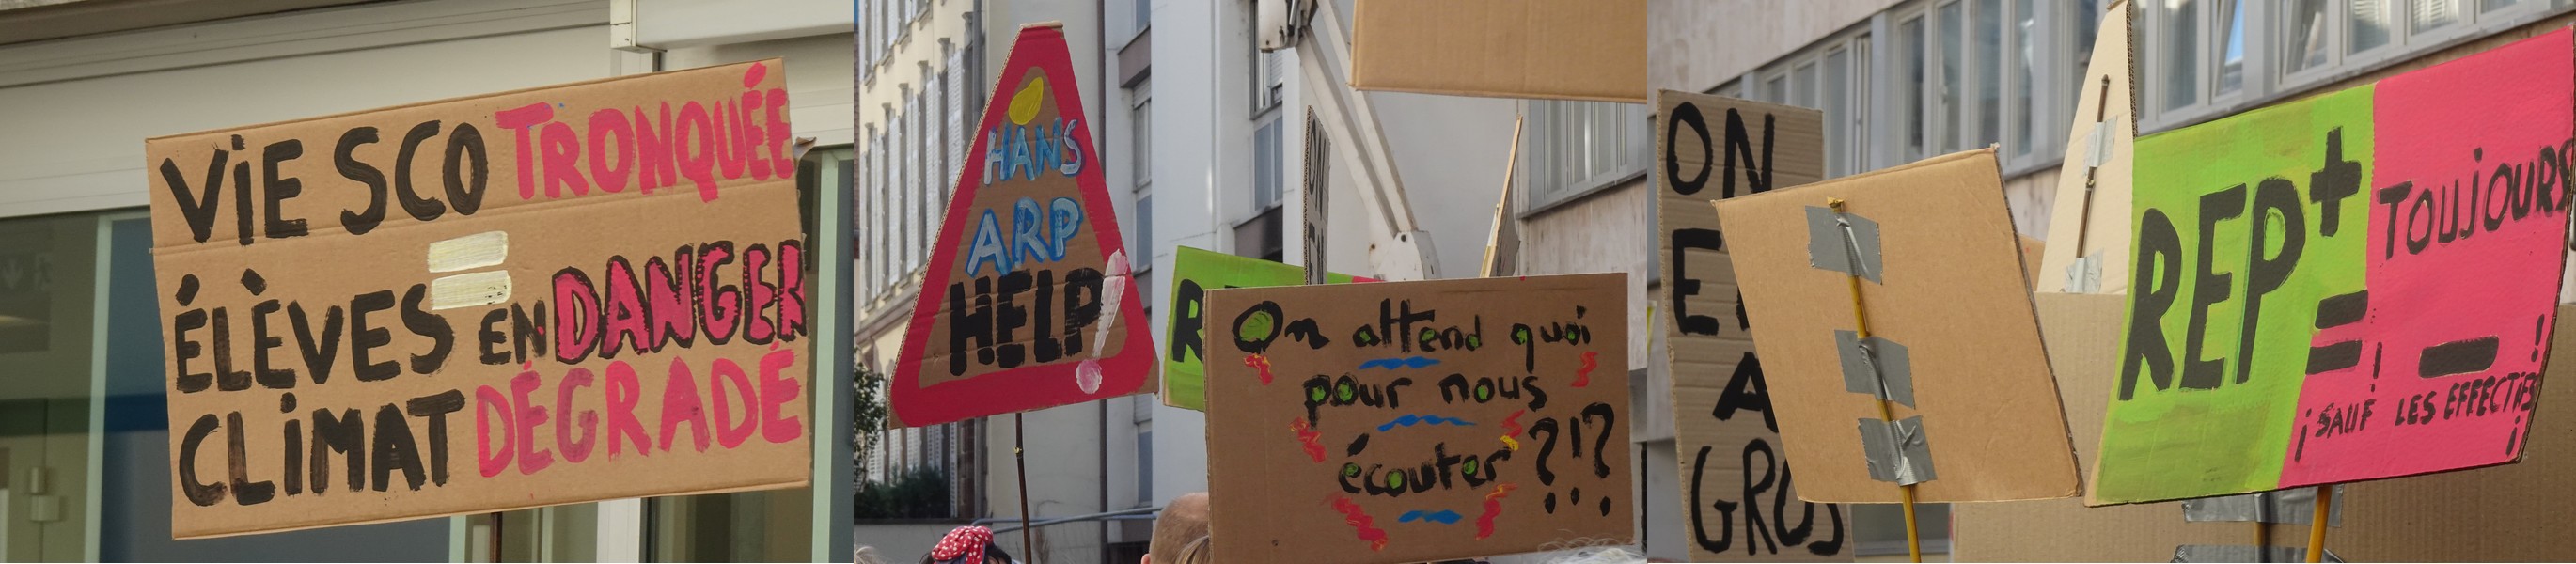 VIE SCO TRONQUÉE
=
ÉLÈVES EN DANGER
CLIMAT DÉGRADÉ
HANS
ARP
HELP!
R
On attend quoi
pour nous
écouter ?!?
ON
E
A
GROS
REP+
=
TOUJOURS
-!
¡SAUF LES EFFECTIFS!